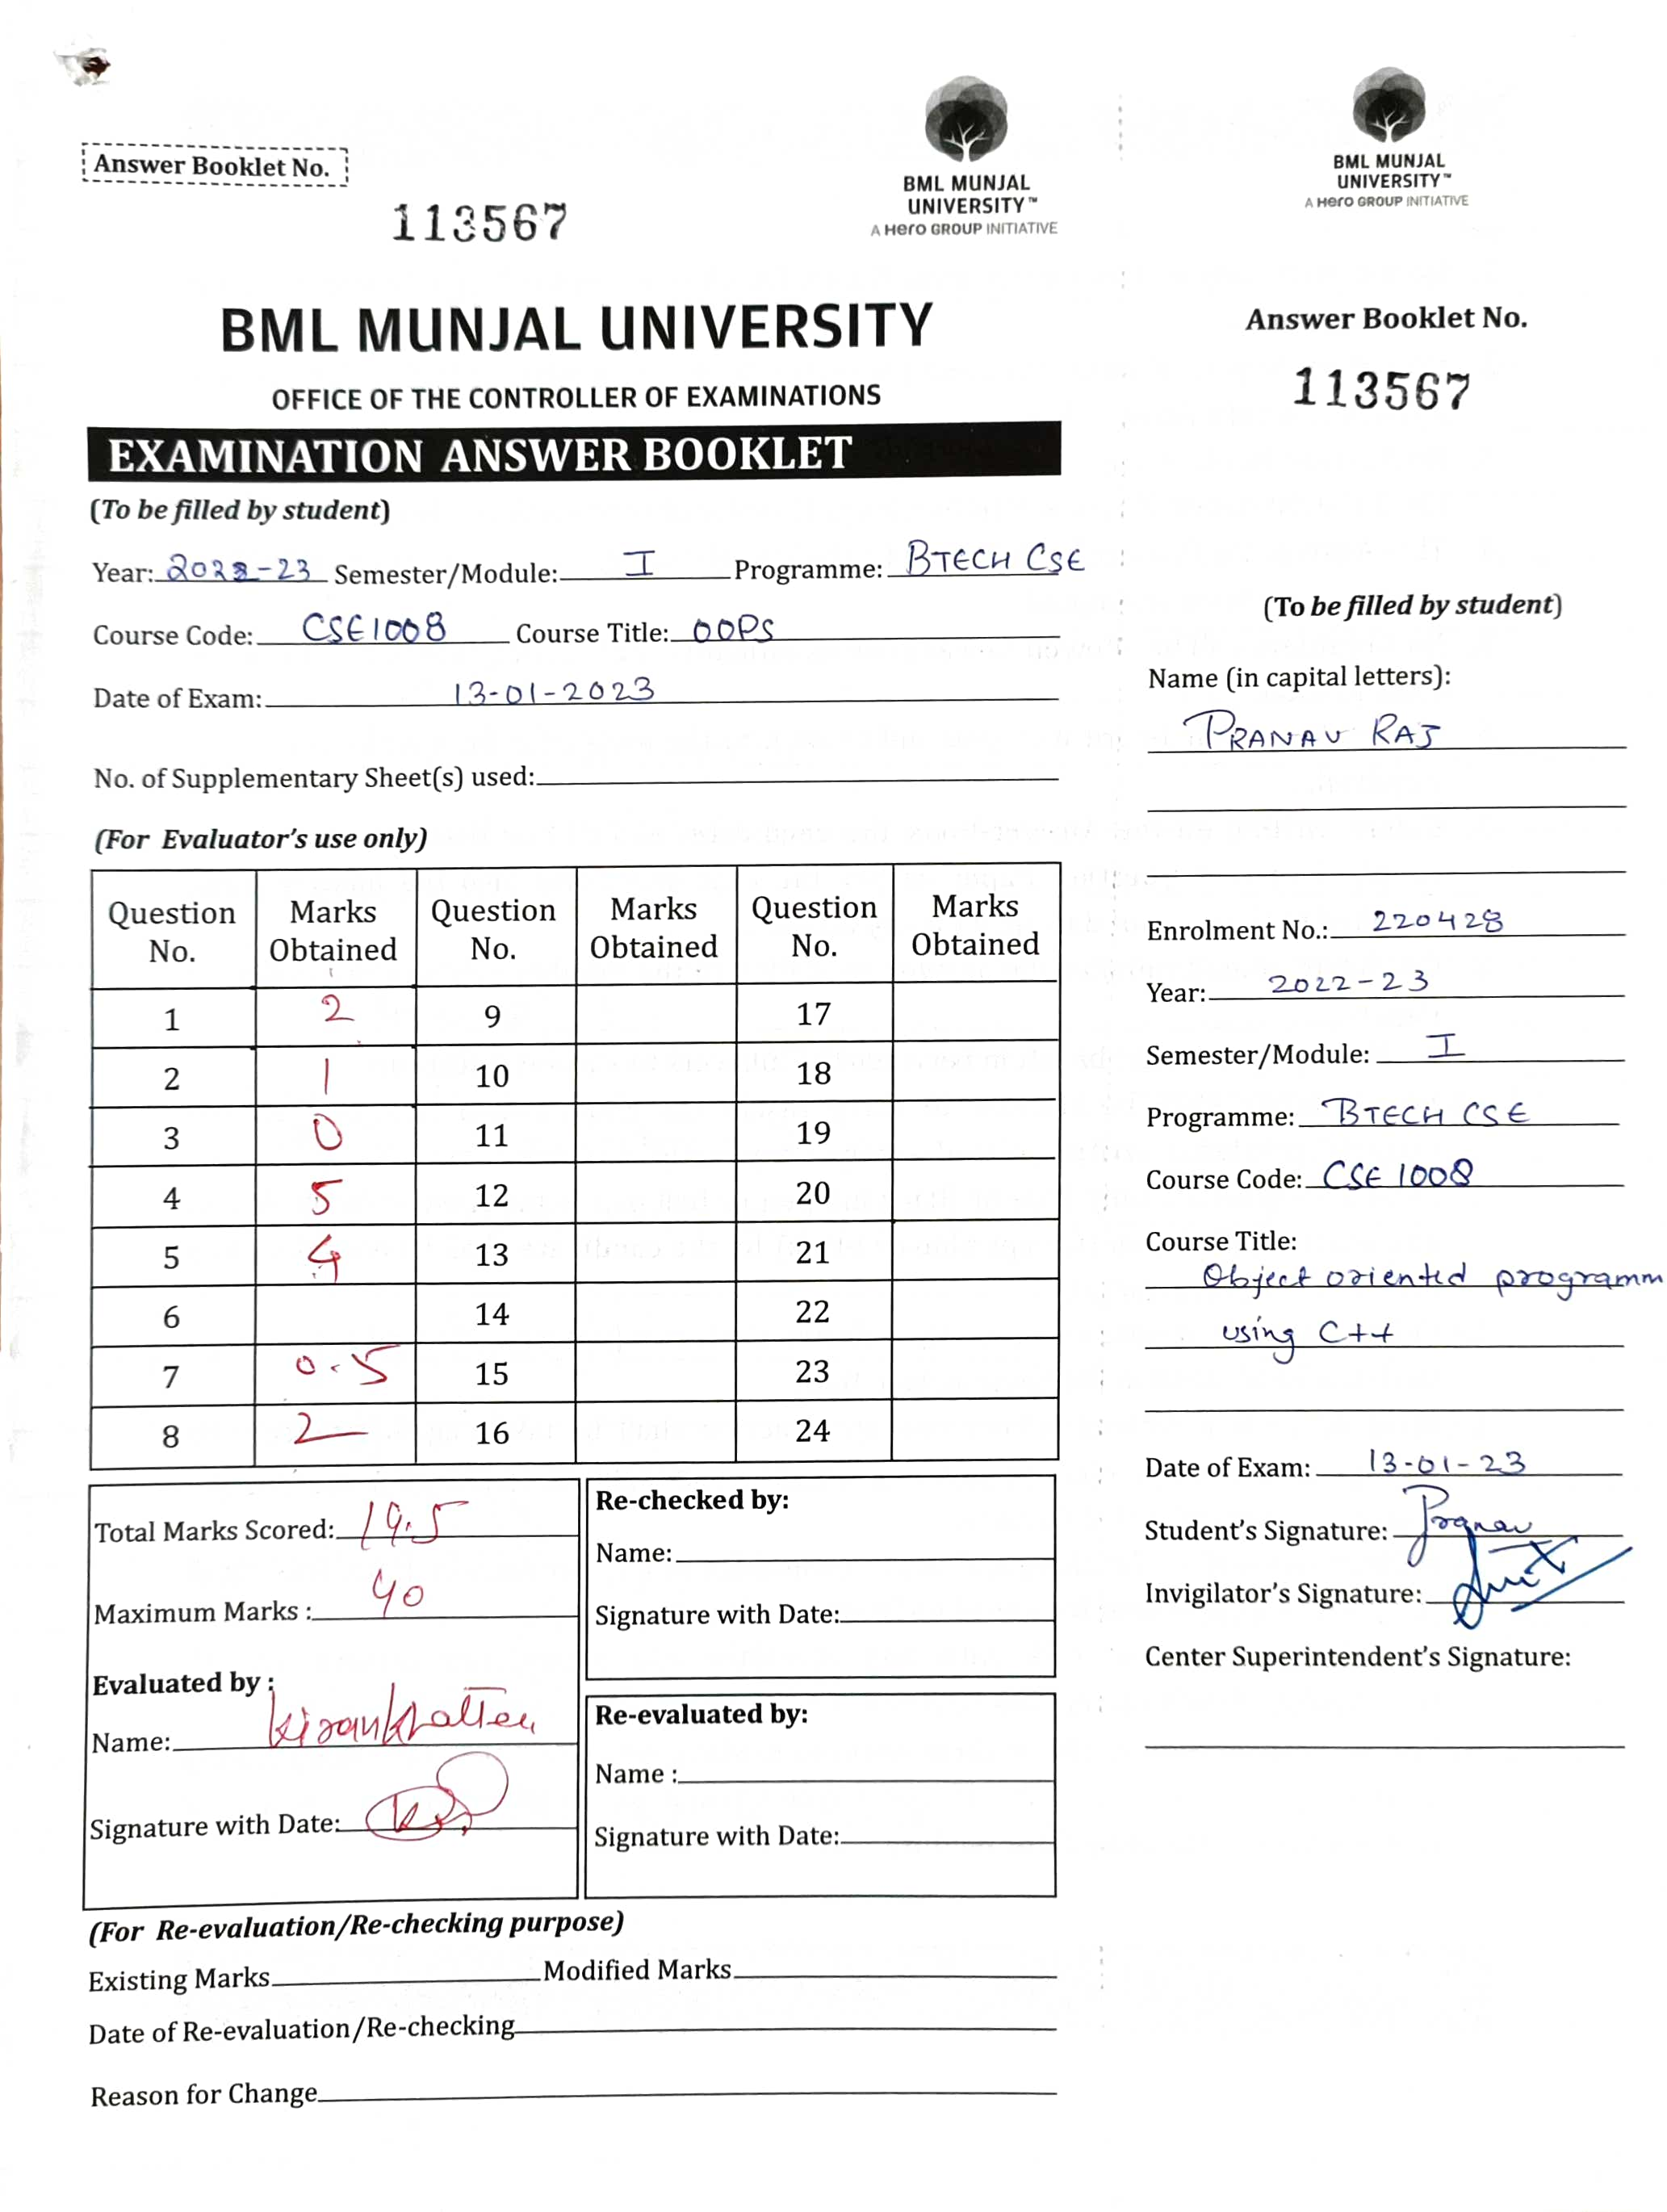 Answer Booklet No.
113567
BML MUNJAL
UNIVERSITY™
A Hero GROUP INITIATIVE
BML MUNJAL UNIVERSITY
OFFICE OF THE CONTROLLER OF EXAMINATIONS
EXAMINATION ANSWER BOOKLET
(To be filled by student)
Year: 2022-23 Semester/Module: I Programme: BTECH CSE
Course Code: CSE1008 Course Title: OOPS
Date of Exam: 13-01-2023
No. of Supplementary Sheet(s) used:
(For Evaluator's use only)
Question No. Marks Obtained Question No. Marks Obtained Question No. Marks Obtained
1 2 9 17
2 1 10 18
3 0 11 19
4 5 12 20
5 4 13 21
6 14 22
7 0.5 15 23
8 2 16 24
Total Marks Scored: 19.5
Maximum Marks : 40
Evaluated by :
Name:
Signature with Date:
Re-checked by:
Name:
Signature with Date:
Re-evaluated by:
Name :
Signature with Date:
(For Re-evaluation/Re-checking purpose)
Existing Marks Modified Marks
Date of Re-evaluation/Re-checking
Reason for Change
BML MUNJAL
UNIVERSITY™
A Hero GROUP INITIATIVE
Answer Booklet No.
113567
(To be filled by student)
Name (in capital letters):
PRANAV RAJ
Enrolment No.: 220428
Year: 2022-23
Semester/Module: I
Programme: BTECH CSE
Course Code: CSE 1008
Course Title:
Object oriented programm
using C++
Date of Exam: 13-01-23
Student's Signature: Pranav
Invigilator's Signature:
Center Superintendent's Signature: